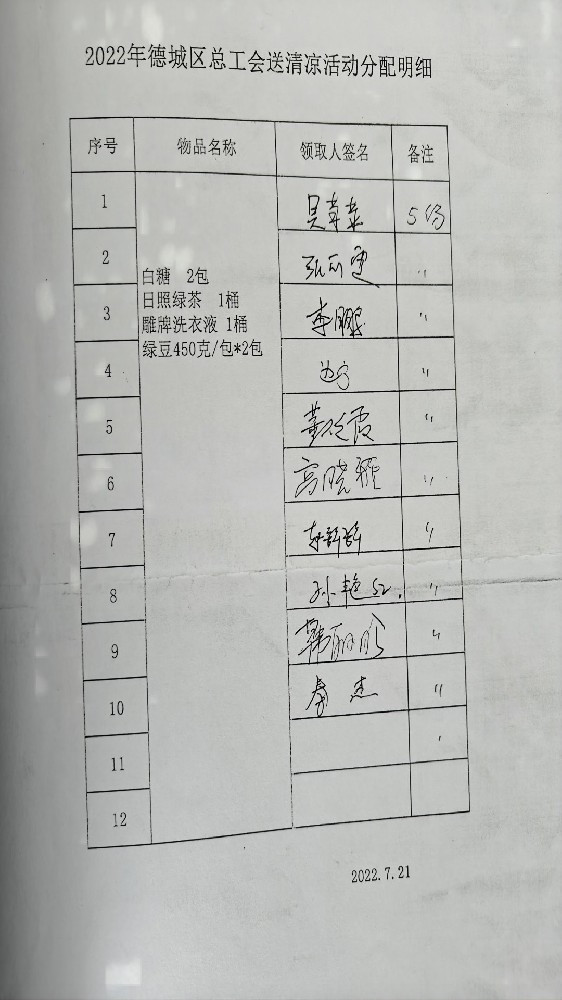 2022年德城区总工会送清凉活动分配明细
序号 物品名称 领取人签名 备注
1 5份
2 〃
白糖 2包
日照绿茶 1桶
3 李鹏 〃
雕牌洗衣液 1桶
绿豆450克/包*2包
4 边宁 〃
5 〃
6 高晓雅 〃
7 〃
8 孙艳红 〃
9 〃
10 秦杰 〃
11
12
2022.7.21